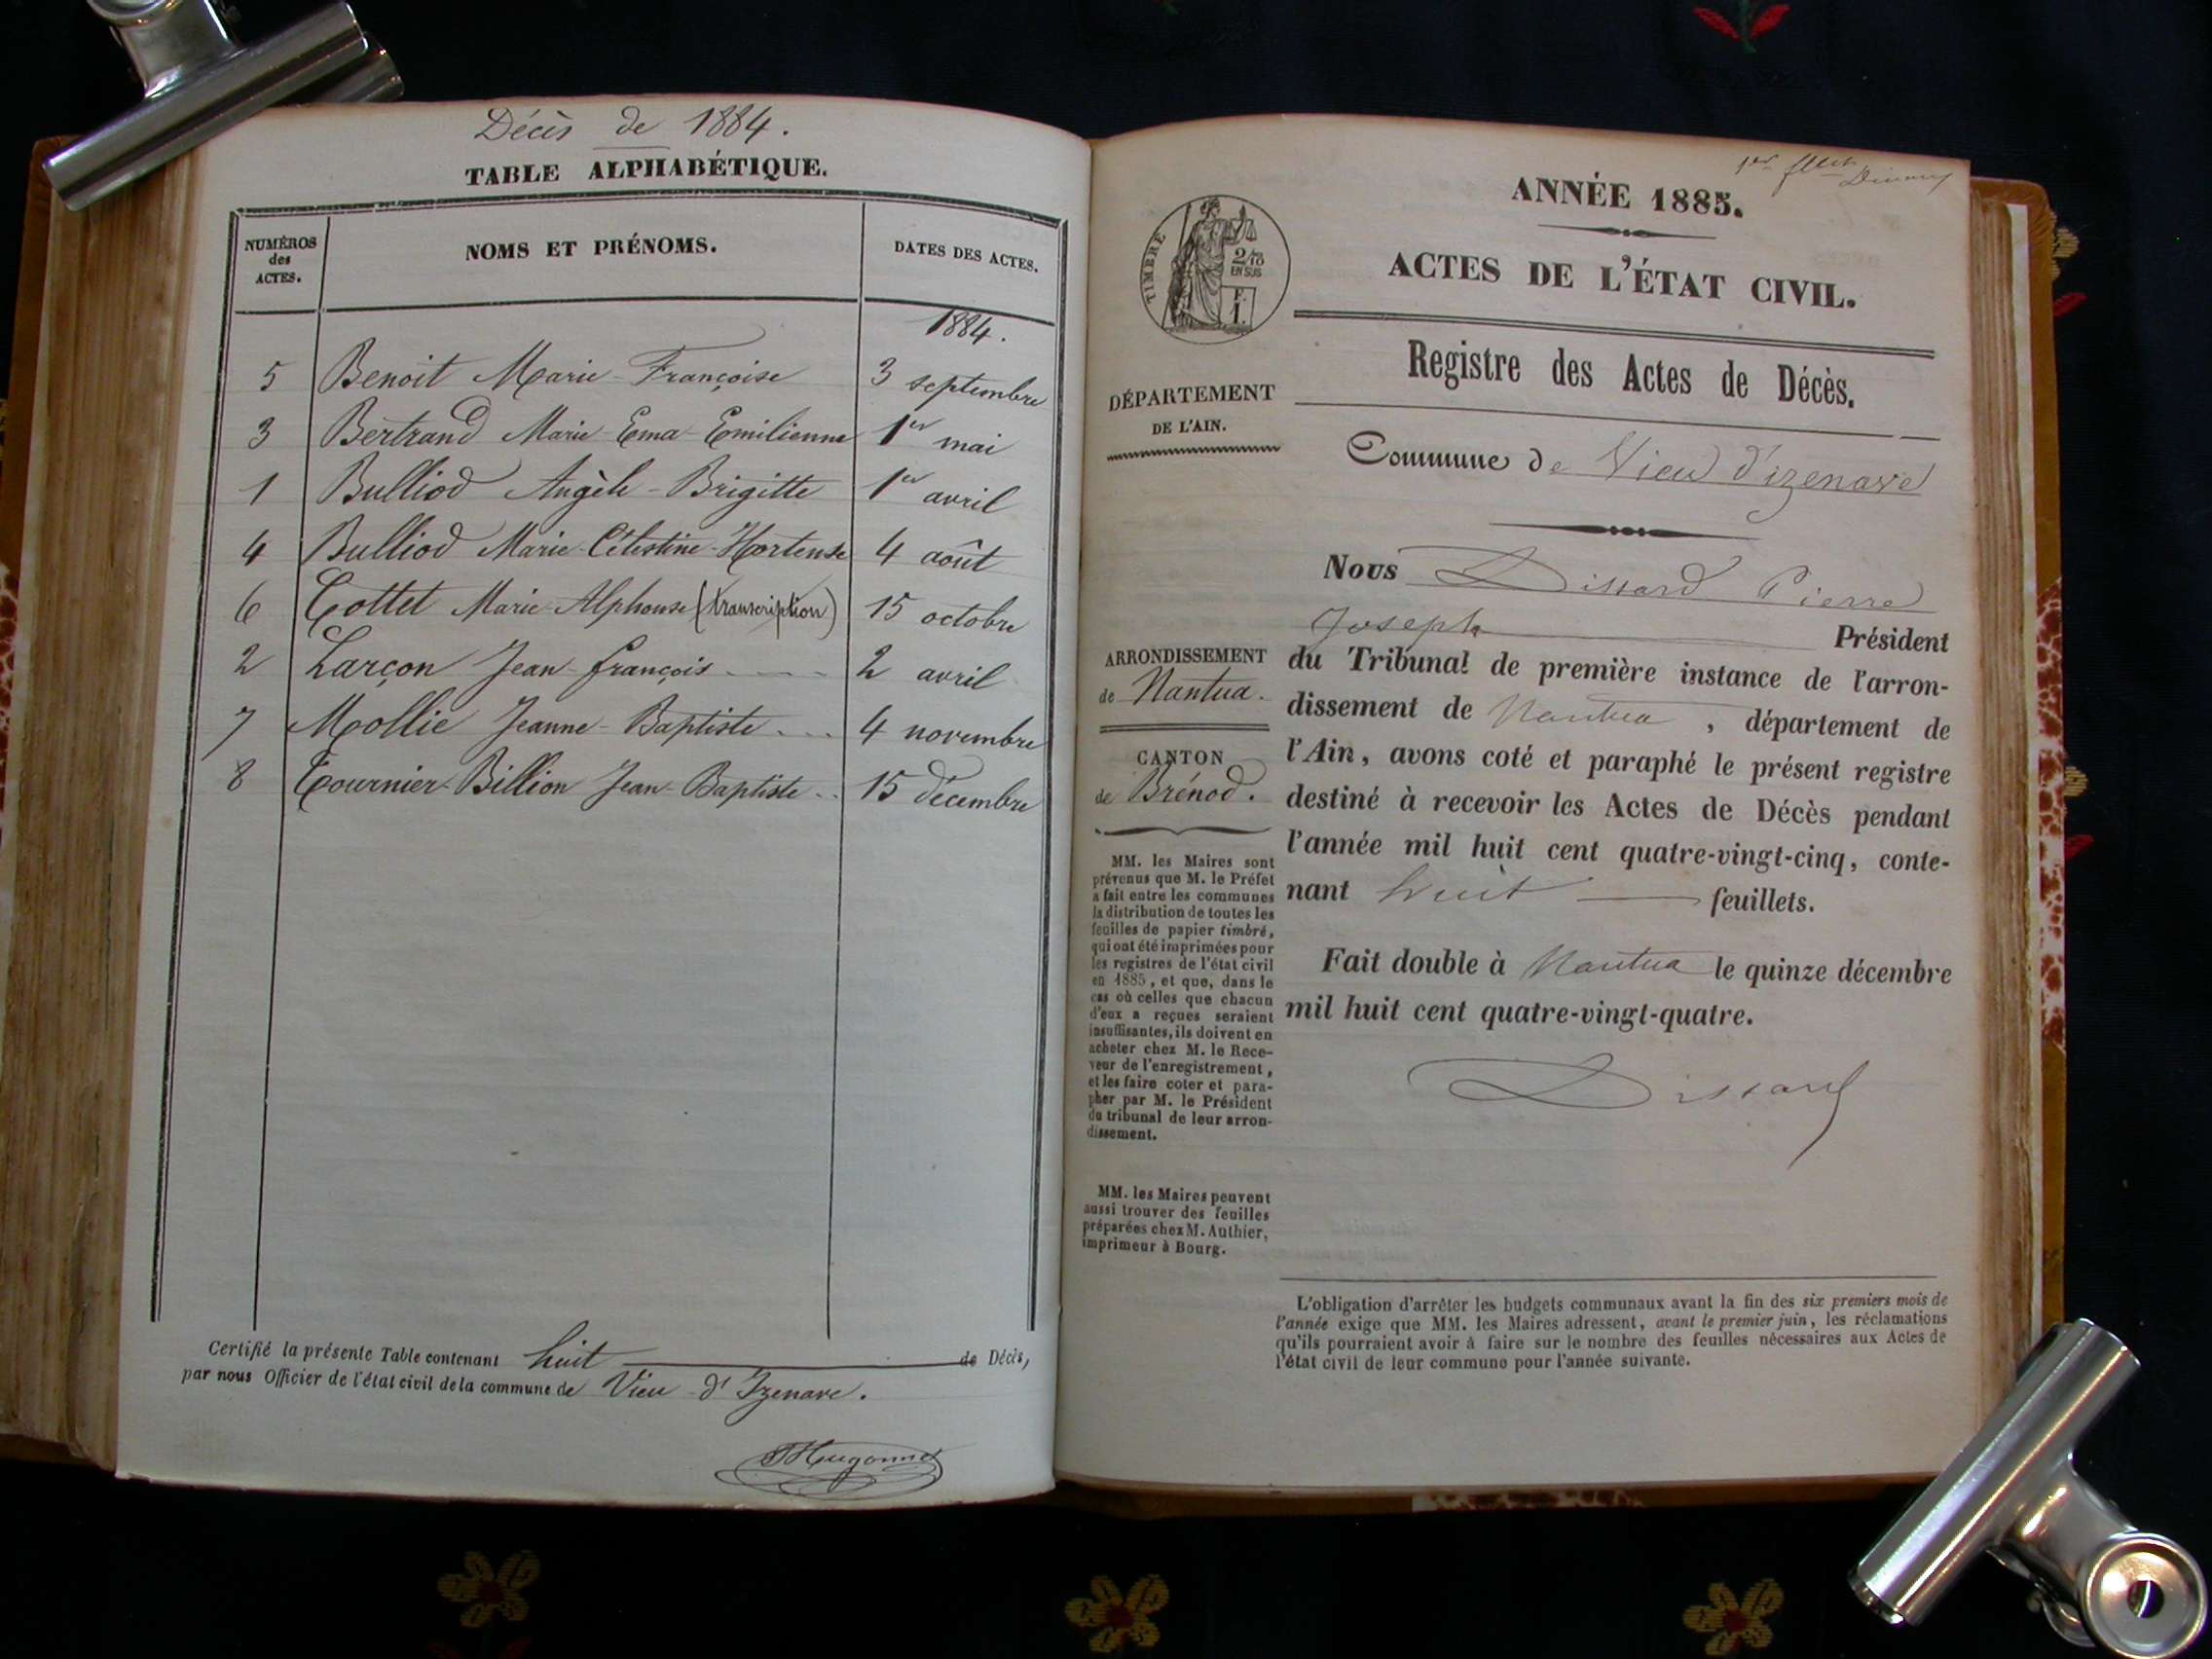 Décès de 1884.
TABLE ALPHABÉTIQUE.
NUMÉROS des ACTES.
NOMS ET PRÉNOMS.
DATES DES ACTES.
1884.
5 Benoit Marie-Françoise 3 septembre
3 Bertrand Marie-Ema-Emilienne 1er mai
1 Bulliod Angèle-Brigitte 1er avril
4 Bulliod Marie-Célestine-Hortense 4 août
6 Cottet Marie-Alphonse (transcription) 15 octobre
2 Larçon Jean-françois 2 avril
7 Mollie Jeanne-Baptiste 4 novembre
8 Tournier-Billion Jean-Baptiste 15 décembre
Certifié la présente Table contenant huit de Décès,
par nous Officier de l'état civil de la commune de Vieu-d'Izenave.
Hugonnet
1er
ANNÉE 1885.
TIMBRE
2/10
EN SUS
F.
1.
ACTES DE L'ÉTAT CIVIL.
Registre des Actes de Décès.
DÉPARTEMENT
DE L'AIN.
Commune de Vieu d'izenave
Nous Dissard Pierre
Joseph Président
du Tribunal de première instance de l'arron-
dissement de Nantua, département de
l'Ain, avons coté et paraphé le présent registre
destiné à recevoir les Actes de Décès pendant
l'année mil huit cent quatre-vingt-cinq, conte-
nant huit feuillets.
Fait double à Nantua le quinze décembre
mil huit cent quatre-vingt-quatre.
Dissard
ARRONDISSEMENT
de Nantua.
CANTON
de Brénod.
MM. les Maires sont
prévenus que M. le Préfet
a fait entre les communes
la distribution de toutes les
feuilles de papier timbré,
qui ont été imprimées pour
les registres de l'état civil
en 1885, et que, dans le
cas où celles que chacun
d'eux a reçues seraient
insuffisantes, ils doivent en
acheter chez M. le Rece-
veur de l'enregistrement,
et les faire coter et para-
pher par M. le Président
du tribunal de leur arron-
dissement.
MM. les Maires peuvent
aussi trouver des feuilles
préparées chez M. Authier,
imprimeur à Bourg.
L'obligation d'arrêter les budgets communaux avant la fin des six premiers mois de
l'année exige que MM. les Maires adressent, avant le premier juin, les réclamations
qu'ils pourraient avoir à faire sur le nombre des feuilles nécessaires aux Actes de
l'état civil de leur commune pour l'année suivante.